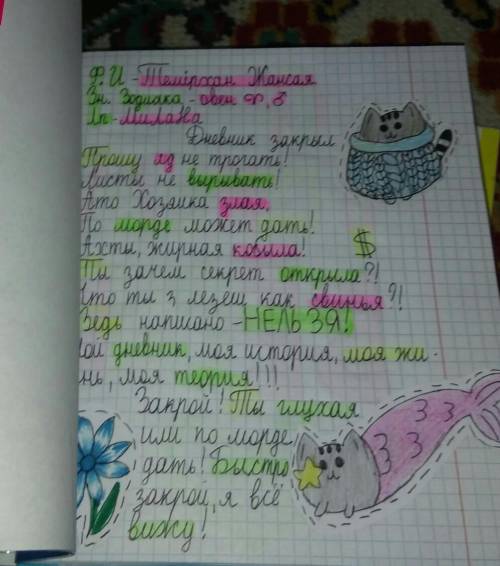 Ф.И - Темірхан Жансая
Зн. Зодиака - овен ♈, ♂
Лп - МилаНа
Дневник закрыл
Прошу лд не трогать!
Листы не вырывать!
Ато Хозяйка злая,
По морде может дать!
Ахты, жирная кобыла!
$
Ты зачем секрет открыла?!
Что ты з лезеш как свинья?!
Ведь написано - НЕЛЬЗЯ!
Мой дневник, моя история, моя жи-
знь, моя теория!!!
Закрой! Ты глухая
или по морде
дать! Быстро
закрой, я всё
вижу!